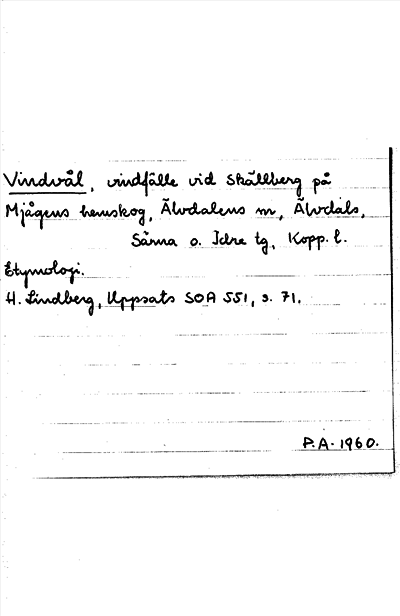 Vindvål, vindfälle vid Skållberg på
Mjågens hemskog, Älvdalens sn, Älvdals,
Särna o. Idre tg, Kopp. l.
Etymologi.
H. Lindberg, Uppsats SOA 551, s. 71.
P.A. 1960.